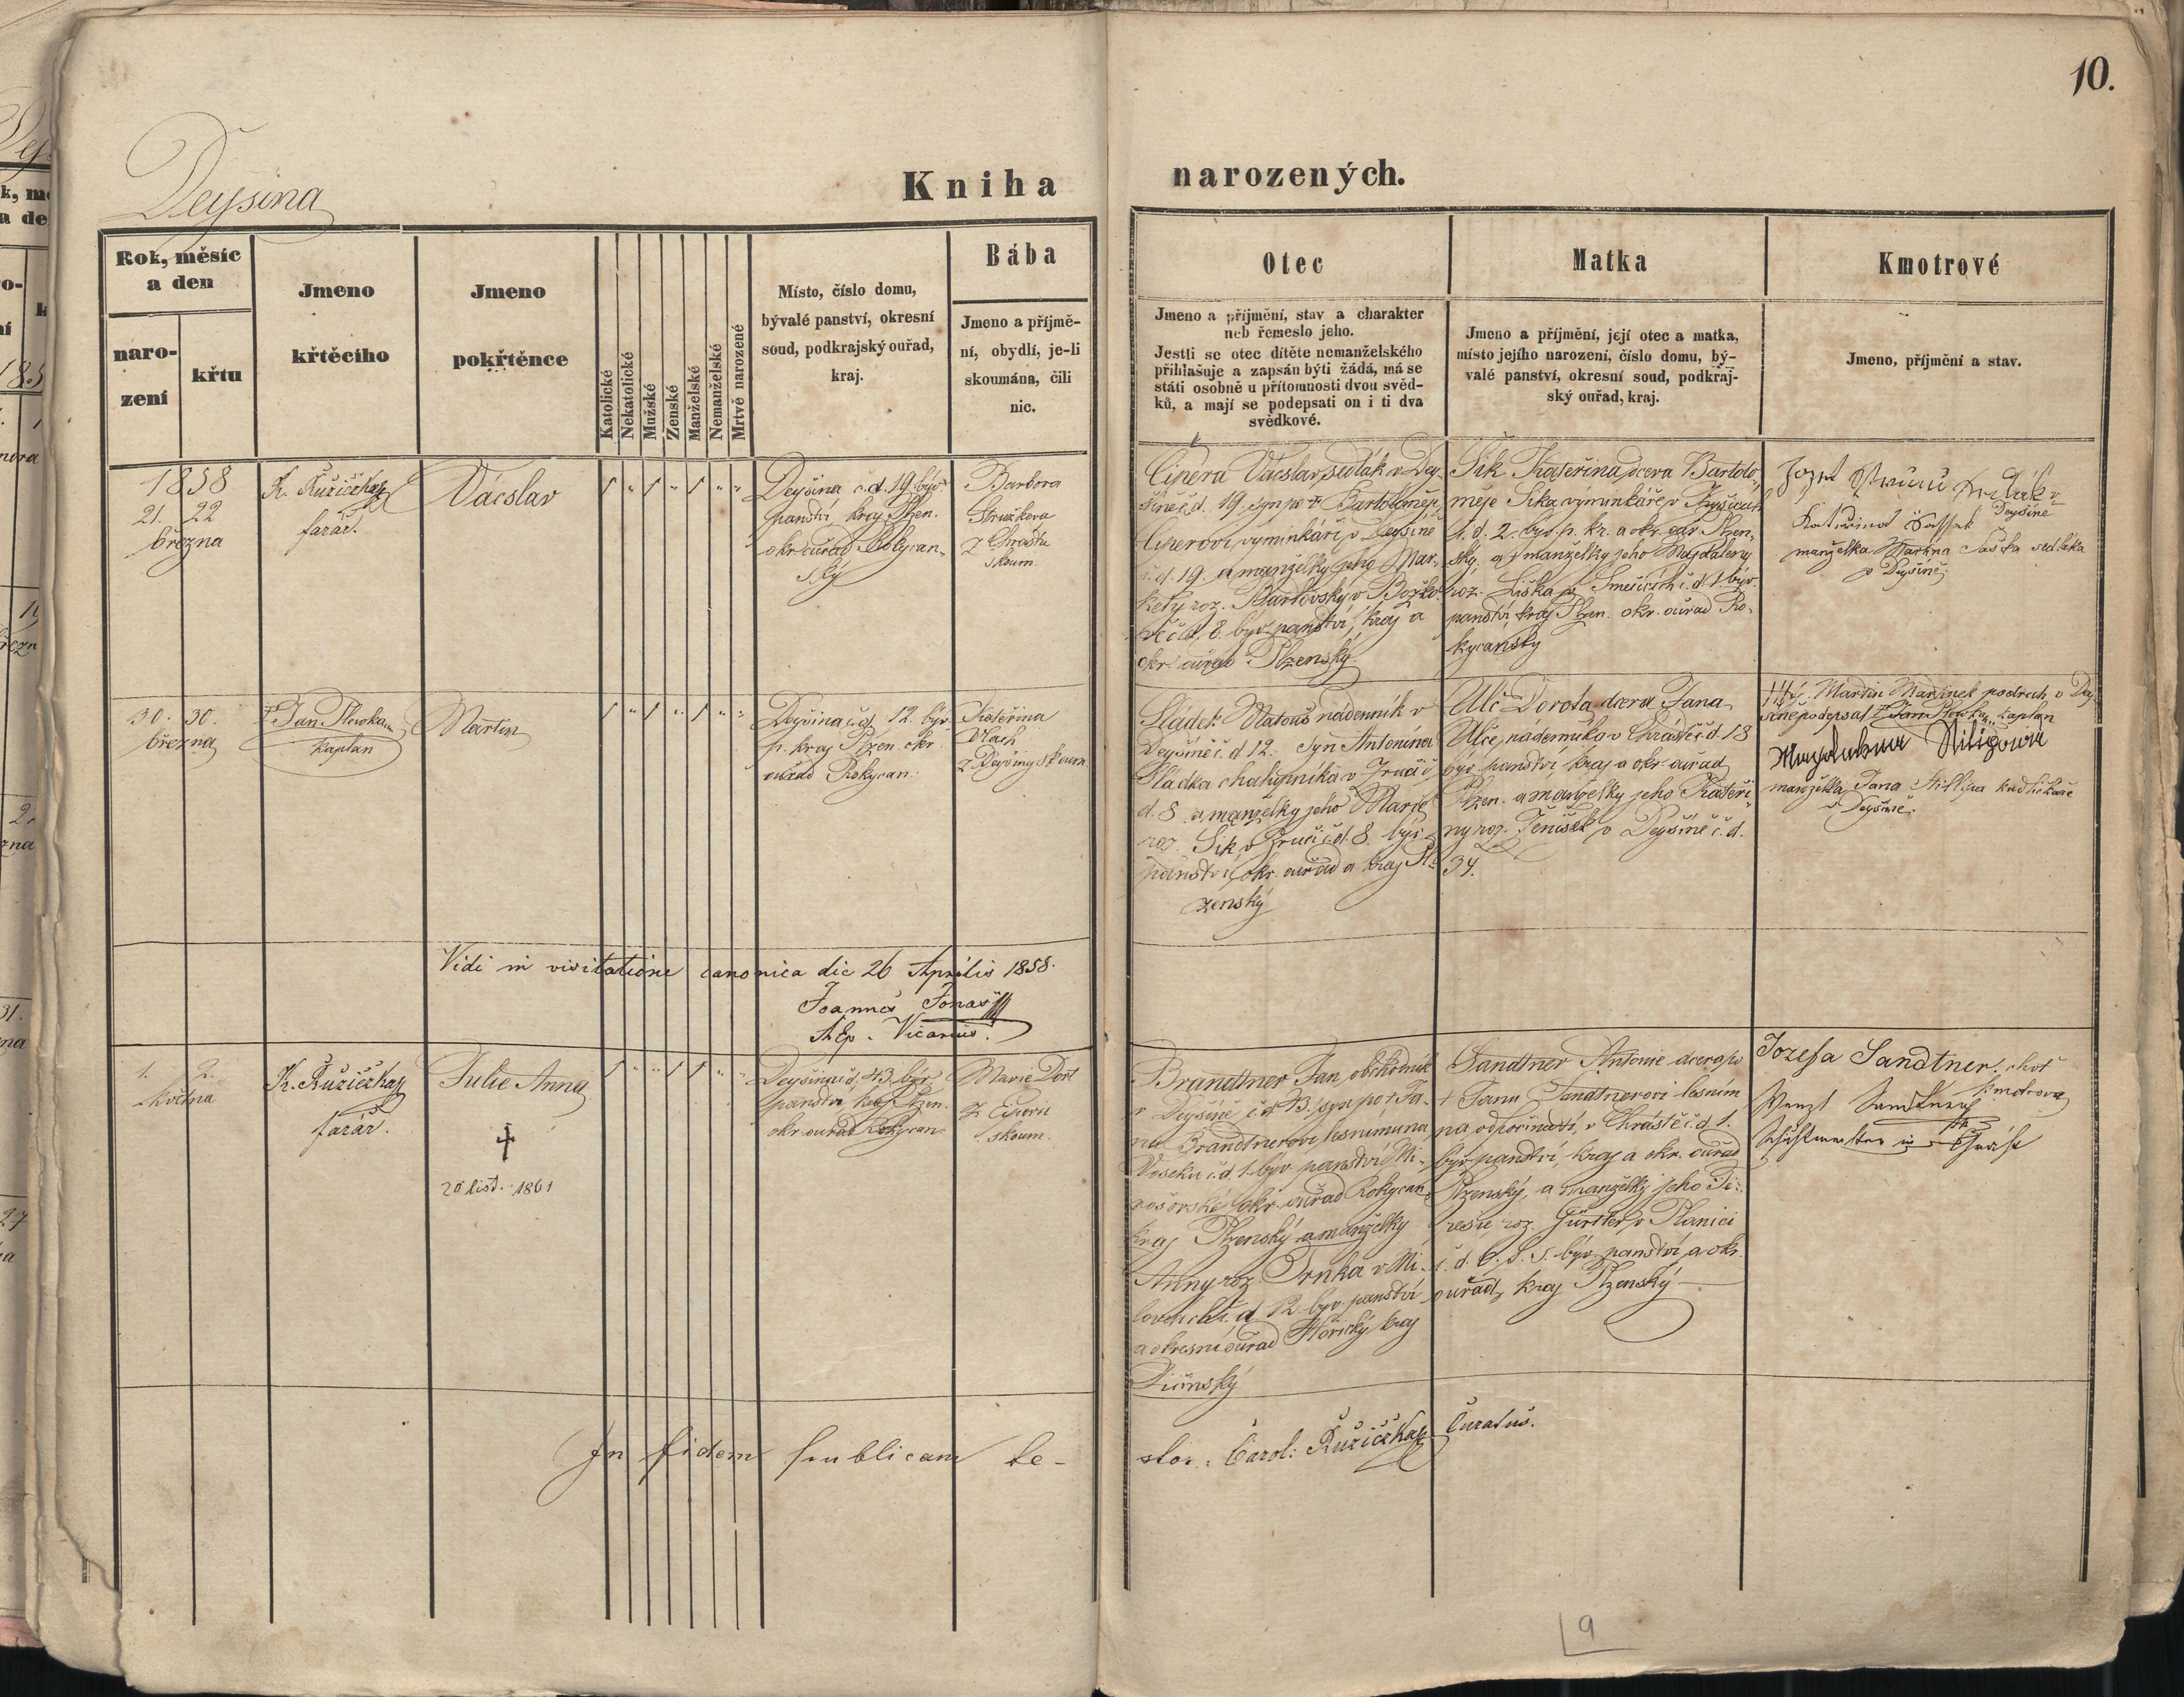 10.
Deyšina
Kniha narozených.
Rok, měsíc
a den
naro-
zení
křtu
Jmeno
křtěcího
Jmeno
pokřtěnce
Katolické
Nekatolické
Mužské
Ženské
Manželské
Nemanželské
Mrtvě narozené
Místo, číslo domu,
bývalé panství, okresní
soud, podkrajský ouřad,
kraj.
Bába
Jmeno a příjmě-
ní, obydlí, je-li
skoumána, čili
nic.
Otec
Jmeno a příjmění, stav a charakter
neb řemeslo jeho.
Jestli se otec dítěte nemanželského
přihlašuje a zapsán býti žádá, má se
státi osobně u přítomnosti dvou svěd-
ků, a mají se podepsati on i ti dva
svědkové.
Matka
Jmeno a příjmění, její otec a matka,
místo jejího narození, číslo domu, bý-
valé panství, okresní soud, podkraj-
ský ouřad, kraj.
Kmotrové
Jmeno, příjmění a stav.
1858
21. 22
března
K. Růžička
farář.
Václav
Deyšina č.d. 19. býv.
panství kraj Plzen.
okr. ouřad Rokycan-
ský
Barbora
Stružkova
z Chrástu
skoum.
Cipera Václav, sedlák v Dey-
šině č.d. 19. syn po † Bartoloměji
Ciperovi výminkáři v Deyšině
č.d. 19. a manželky jeho Mar-
kety roz.
č.d. 8. býv. panství, kraj a
okr. ouřad Plzenský.
Šik Kateřina dcera Bartolo-
měje Šika výminkáře v
č.d. 2. býv. p. kr. a okr. ouř. Plzen-
ský, a manželky jeho Magdaleny
roz. Liška z Smědčic č.d. 1. býv.
panství, kraj Plzen. okr. ouřad Ro-
kycanský
Jozef
v Deyšině
manželka Martina Šaška sedláka
v Deyšině
30. 30.
března
P. Jan
kaplan
Martin
Deyšina č.d. 12. býv.
p. kraj Plzen. okr.
ouřad Rokycan.
Kateřina
Vlach
z Deyšiny skoum.
Sládek Matouš nádenník v
Deyšině č.d. 12. syn Antonína
Sládka chalupníka v Zruči č.
d. 8. a manželky jeho Marie
roz. Šik v Zruči č.d. 8. býv.
panství, okr. ouřad a kraj Pl-
zenský
Ulč Dorota dcera Jana
Ulče, nádenníka v Chrástě č.d. 18
býv. panství, kraj a okr. ouřad
Plzen. a manželky jeho Kateři-
ny roz. Jeníšek v Deyšině č.d.
34.
††† Martin Martinek podruh v Dey-
šině podepsal P. Jan kaplan
manželka Jana
v Deyšině.
Vidi in visitatione canonica die 26 Aprilis 1858.
Joannes Jonas
AEp. Vicarius.
1. 2.
května
K. Růžička
farář.
Julie Anna
†
20 list. 1861
Deyšina č.d. 43. býv.
panství kraj Plzen.
okr. ouřad Rokycan.
Marie Dort
z
skoum.
Brandtner Jan, obchodník
v Deyšině č.d. 43. syn po † Ja-
nu Brandtnerovi lesnímu na
Voseku č.d. 1. býv. panství Mi-
rošovské okr. ouřad Rokycan.
kraj Plzenský a manželky
Anny roz. Trnka v Mi-
lovicích č.d. 12. býv. panství
a okresní ouřad Hořický kraj
Jičínský
Sandtner Antonie dcera po
† Janu Sandtnerovi lesním
na odpočinutí, v Chrástě č.d. 1.
býv. panství, kraj a okr. ouřad
Plzenský, a manželky jeho Te-
resie roz. Gürtler v Planici
č.d. 6. p. s. býv. panství a okr.
ouřad, kraj Plzenský
Jozefa Sandtner, choť
kmotrova
Wenzl Sandtner
Schichtmeister in Chrást
In fidem publicam te-
stor: Carol: Růžička Curatus.
9